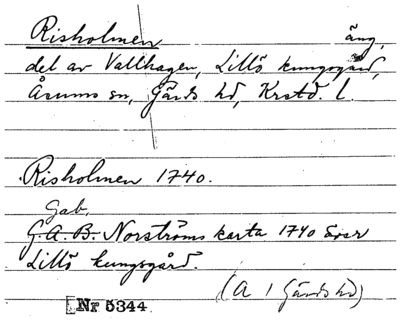 Risholmen äng,
del av Vallhagen, Lillö kungsgård,
Åsums sn, Gärds hd, Krstd. l.
Risholmen 1740.
Gab.
G.A.B. Norströms karta 1740 över
Lillö kungsgård.
(A 1 Gärds hd)
Nr 5344